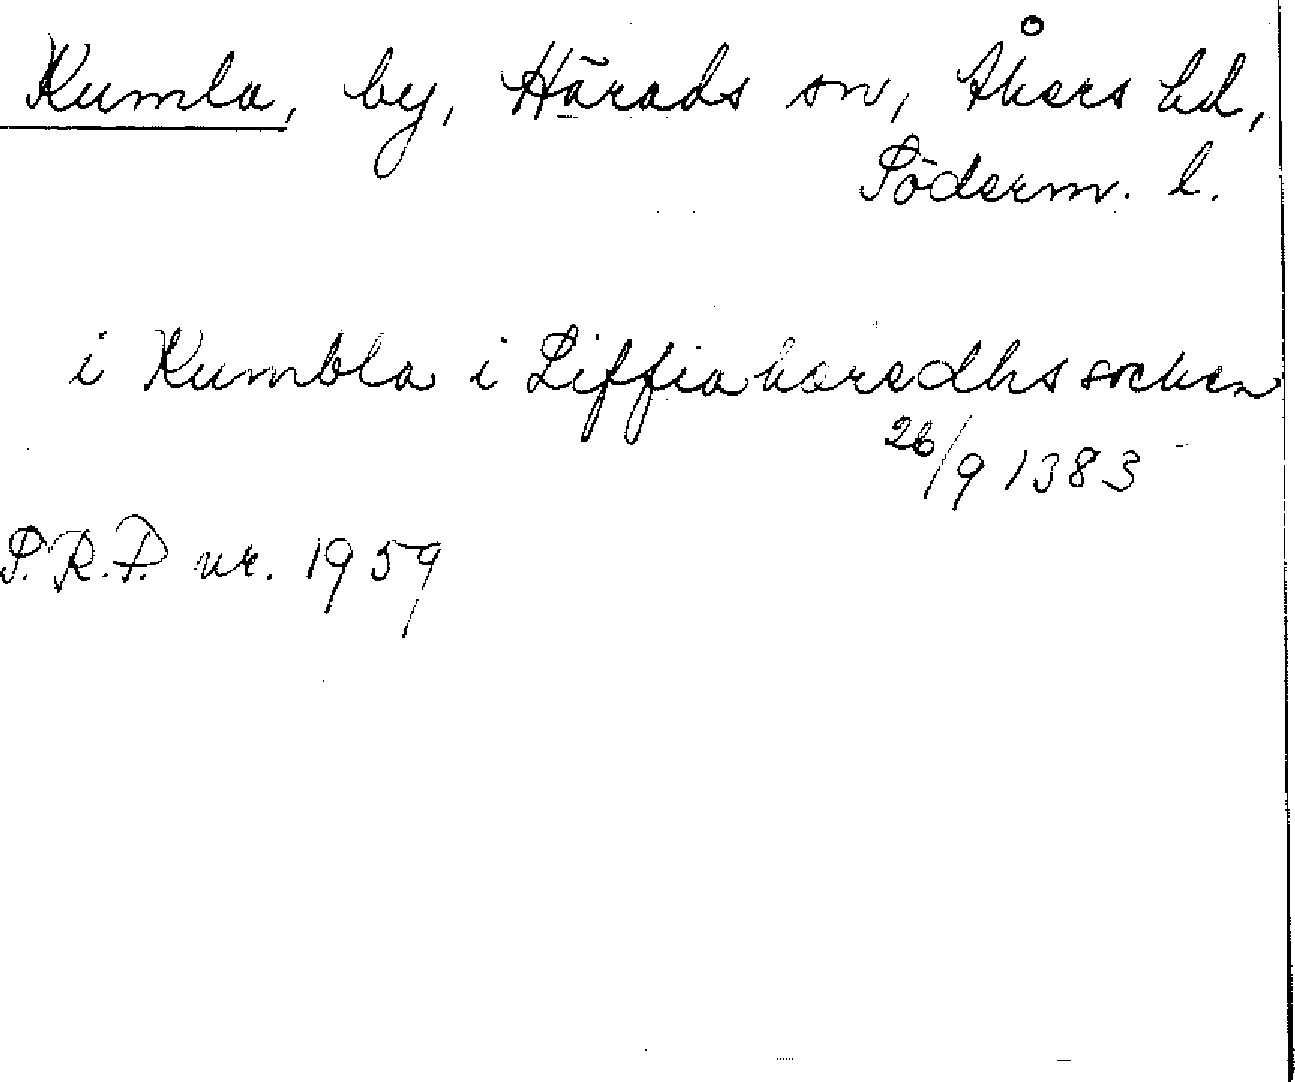 Kumla, by, Härads sn, Åkers hd,
Söderm. l.
i Kumbla i Liffiahæredhssocken
26/9 1383
S.R.P. nr. 1959